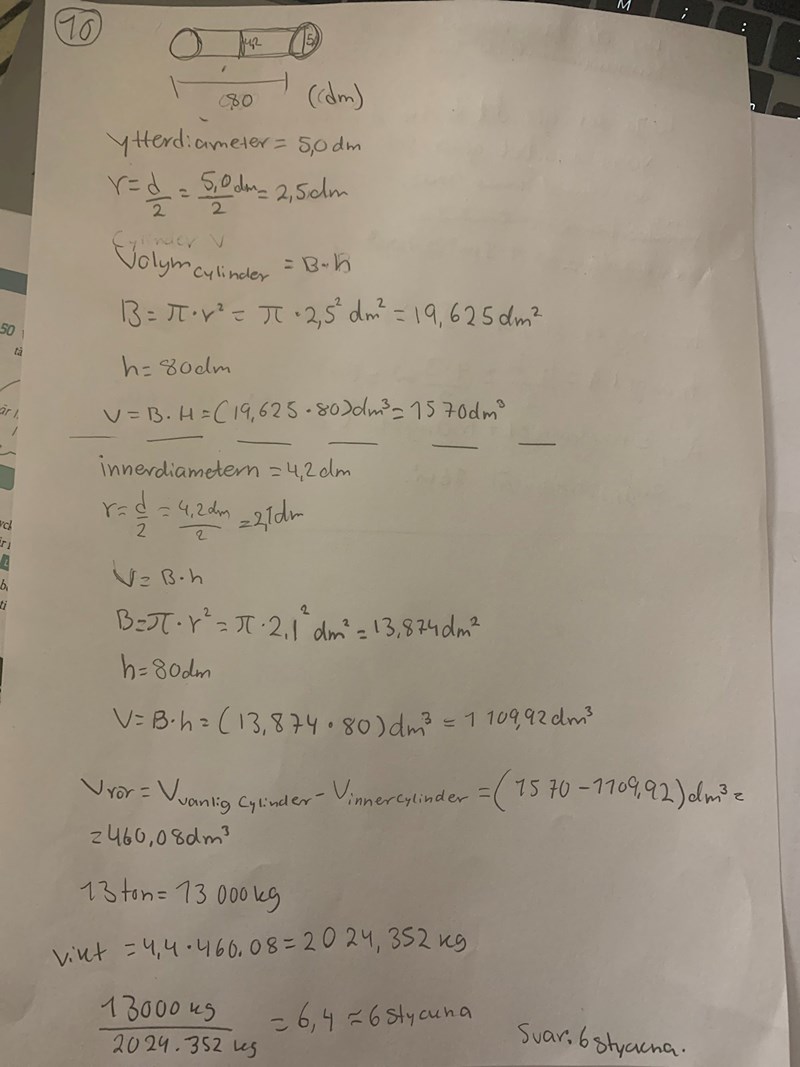 10
4,2
5
80 (dm)
ytterdiameter = 5,0 dm
r = d/2 = 5,0 dm/2 = 2,5 dm
Cylinder V
Volym cylinder = B·h
B = π · r² = π · 2,5² dm² = 19,625 dm²
h = 80 dm
V = B · H = (19,625 · 80) dm³ = 1570 dm³
innerdiametern = 4,2 dm
r = d/2 = 4,2 dm/2 = 2,1 dm
V = B · h
B = π · r² = π · 2,1² dm² = 13,874 dm²
h = 80 dm
V = B · h = (13,874 · 80) dm³ = 1 109,92 dm³
Vrör = Vvanlig cylinder - Vinnercylinder = (1570 - 1109,92) dm³ =
= 460,08 dm³
13 ton = 13 000 kg
vikt = 4,4 · 460,08 = 2024,352 kg
13000 kg/2024.352 kg = 6,4 ≈ 6 stycuna
Svar: 6 stycuna.